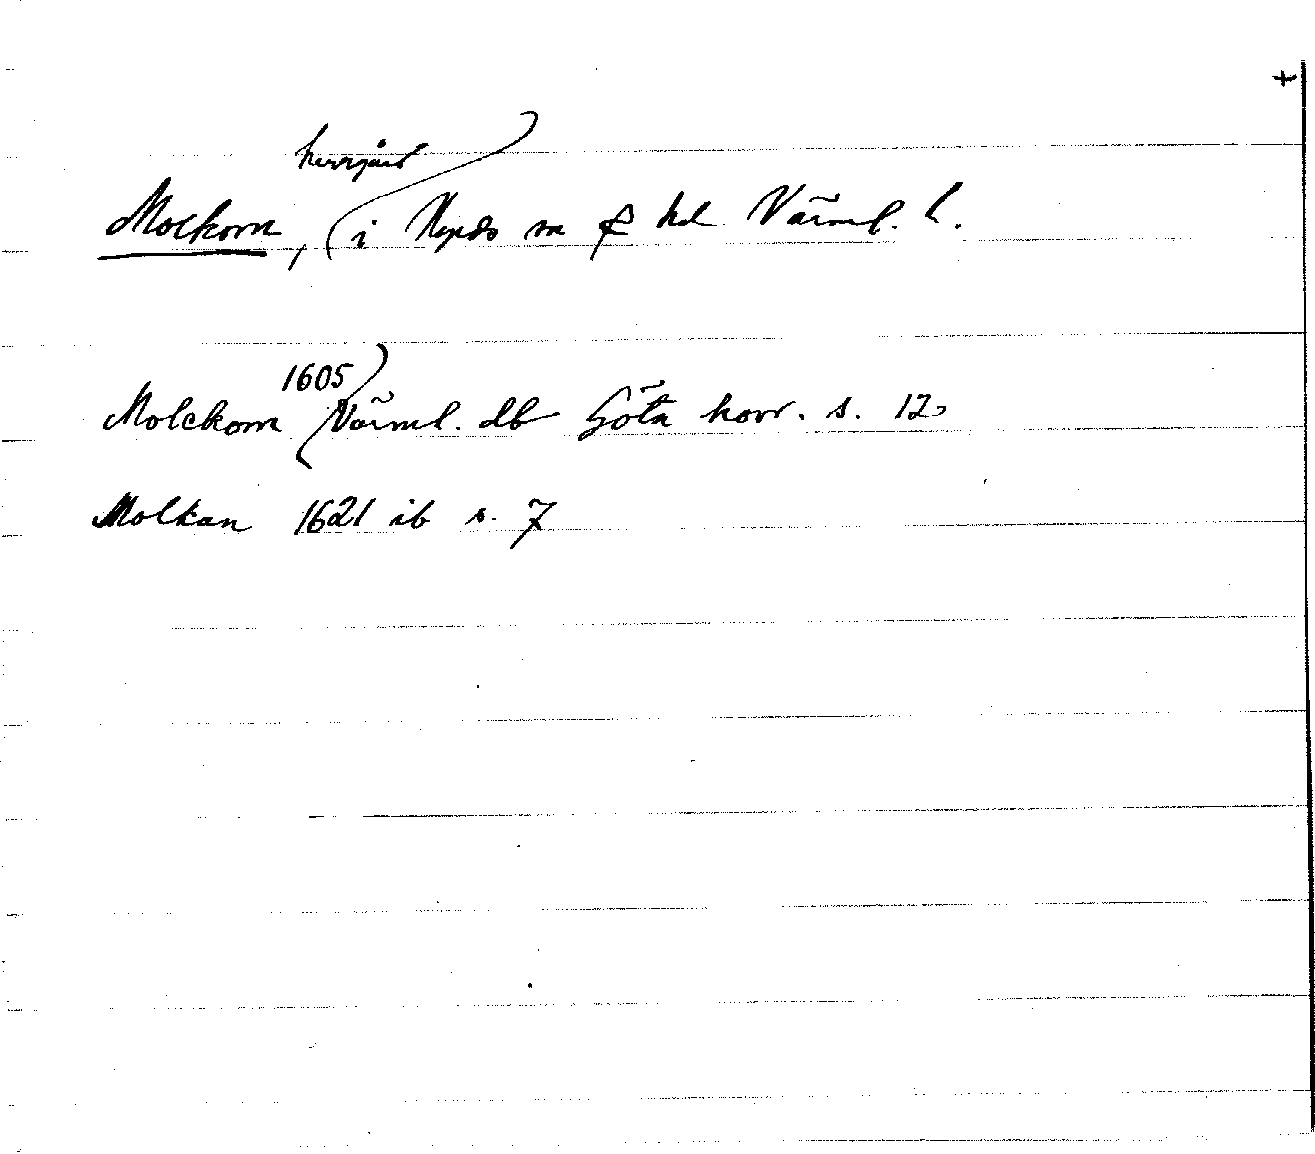 +
herrgård
Molkom, i Nyeds sn o hd Värml. l.
1605
Molckom Värml. db Göta hovr. s. 12
Molkan 1621 ib s. 7